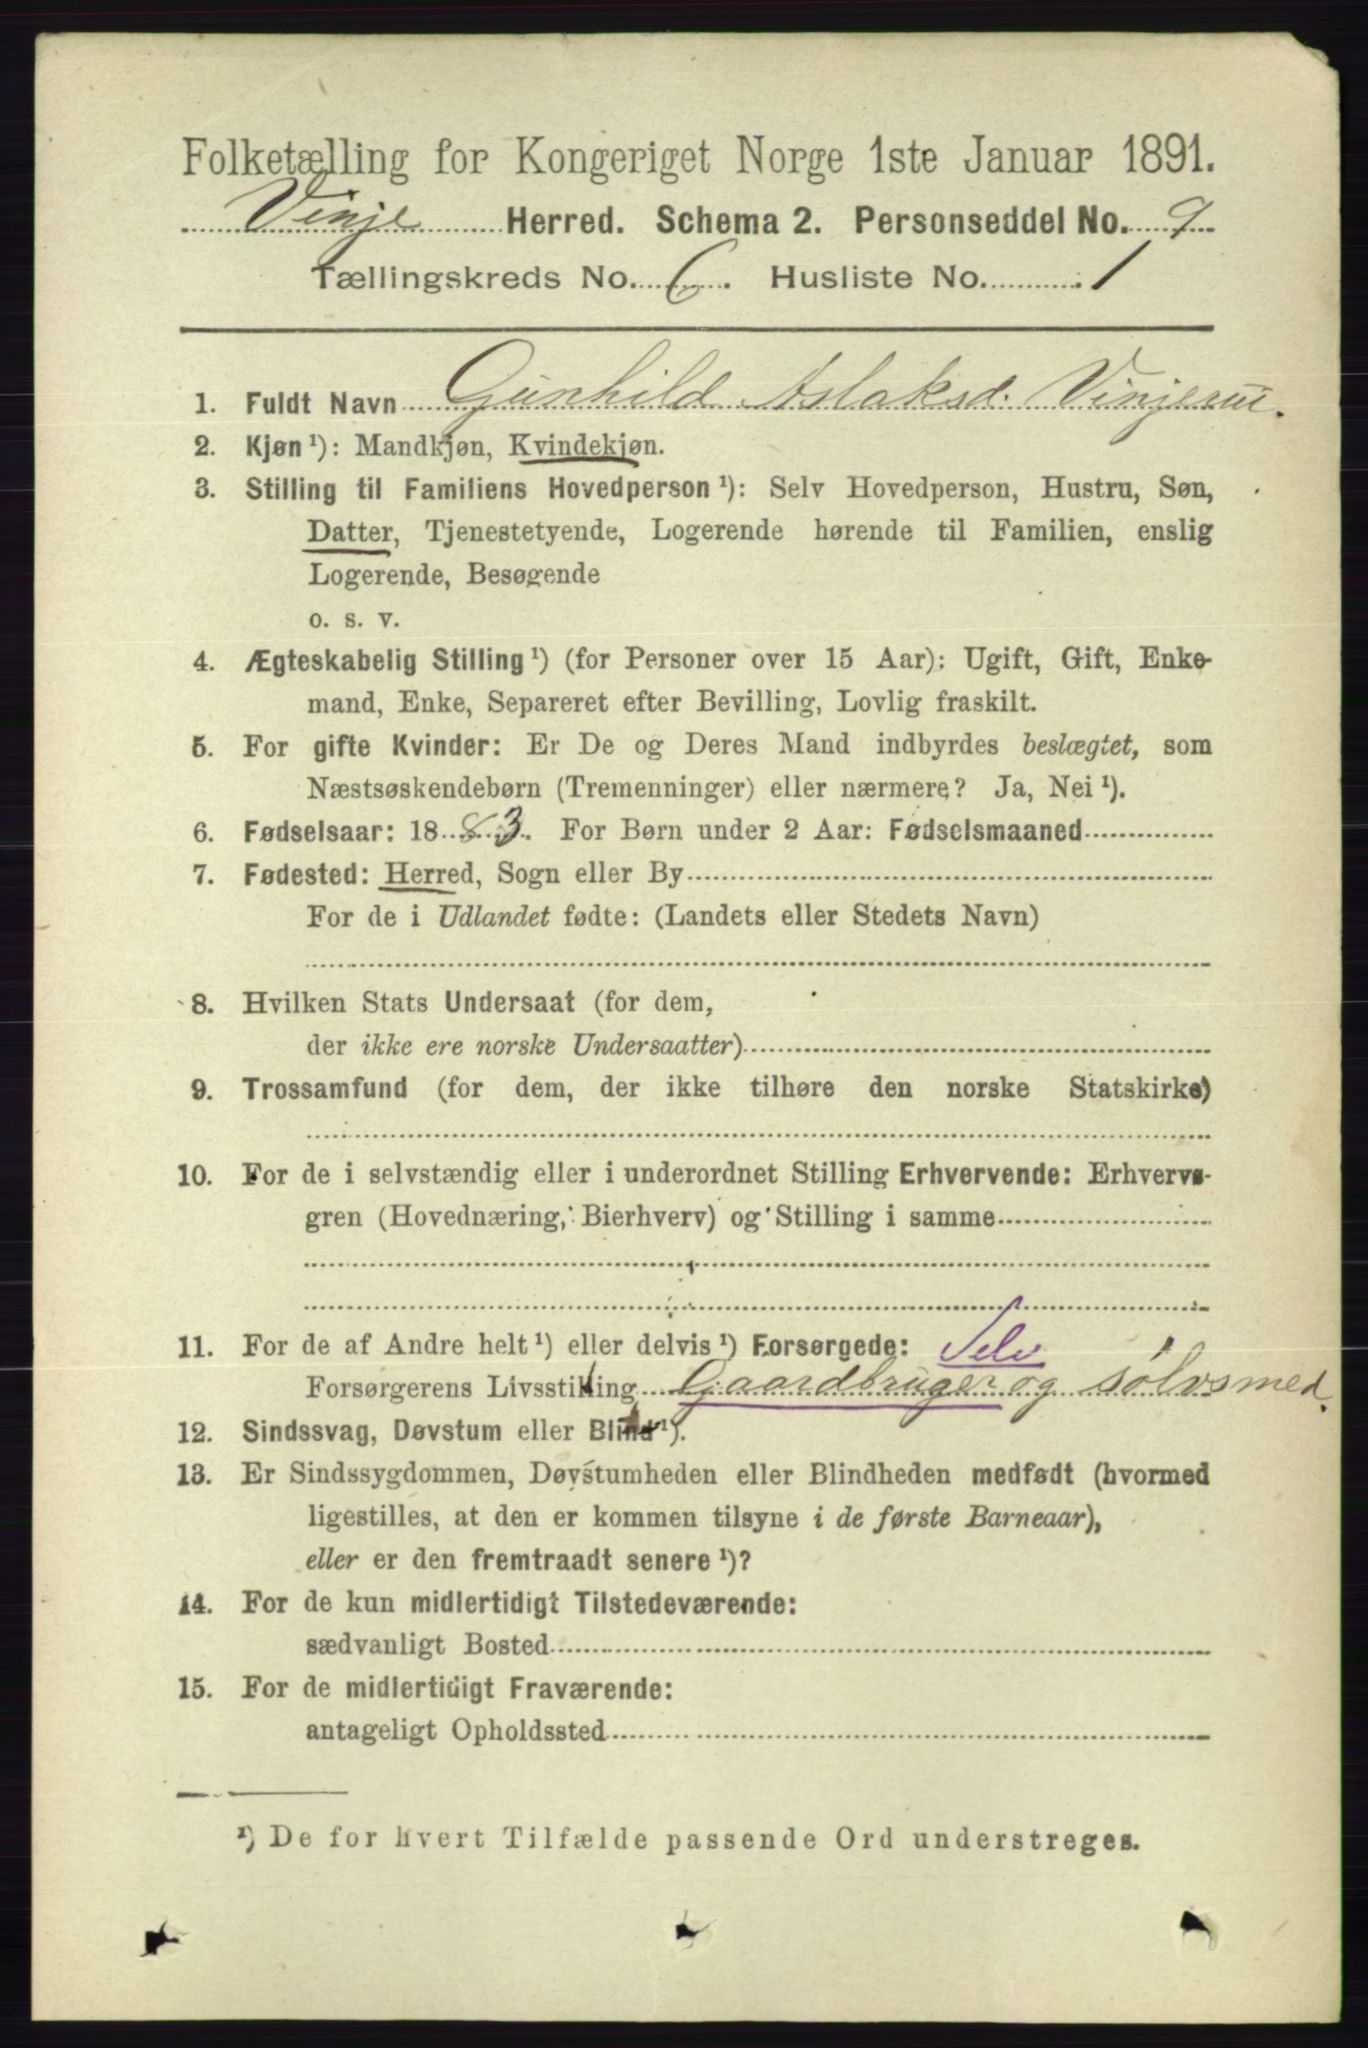 Folketælling for Kongeriget Norge 1ste Januar 1891.
Vinje Herred. Schema 2. Personseddel No. 9
Tællingskreds No. 6. Husliste No. 1
1. Fuldt Navn Gunhild Aslaksd. Vinjerui.
2. Kjøn ¹): Mandkjøn, Kvindekjøn.
3. Stilling til Familiens Hovedperson ¹): Selv Hovedperson, Hustru, Søn,
Datter, Tjenestetyende, Logerende hørende til Familien, enslig
Logerende, Besøgende
o. s. v.
4. Ægteskabelig Stilling ¹) (for Personer over 15 Aar): Ugift, Gift, Enke-
mand, Enke, Separeret efter Bevilling, Lovlig fraskilt.
5. For gifte Kvinder: Er De og Deres Mand indbyrdes beslægtet, som
Næstsøskendebørn (Tremenninger) eller nærmere? Ja, Nei ¹).
6. Fødselsaar: 1883. For Børn under 2 Aar: Fødselsmaaned
7. Fødested: Herred, Sogn eller By
For de i Udlandet fødte: (Landets eller Stedets Navn)
8. Hvilken Stats Undersaat (for dem,
der ikke ere norske Undersaatter)
9. Trossamfund (for dem, der ikke tilhøre den norske Statskirke)
10. For de i selvstændig eller i underordnet Stilling Erhvervende: Erhvervs-
gren (Hovednæring, Bierhverv) og Stilling i samme
11. For de af Andre helt ¹) eller delvis ¹) Forsørgede: Selv
Forsørgerens Livsstilling Gaardbruger og sølvsmed.
12. Sindssvag, Døvstum eller Blind ¹).
13. Er Sindssygdommen, Døvstumheden eller Blindheden medfødt (hvormed
ligestilles, at den er kommen tilsyne i de første Barneaar),
eller er den fremtraadt senere ¹)?
14. For de kun midlertidigt Tilstedeværende:
sædvanligt Bosted
15. For de midlertidigt Fraværende:
antageligt Opholdssted
¹) De for hvert Tilfælde passende Ord understreges.